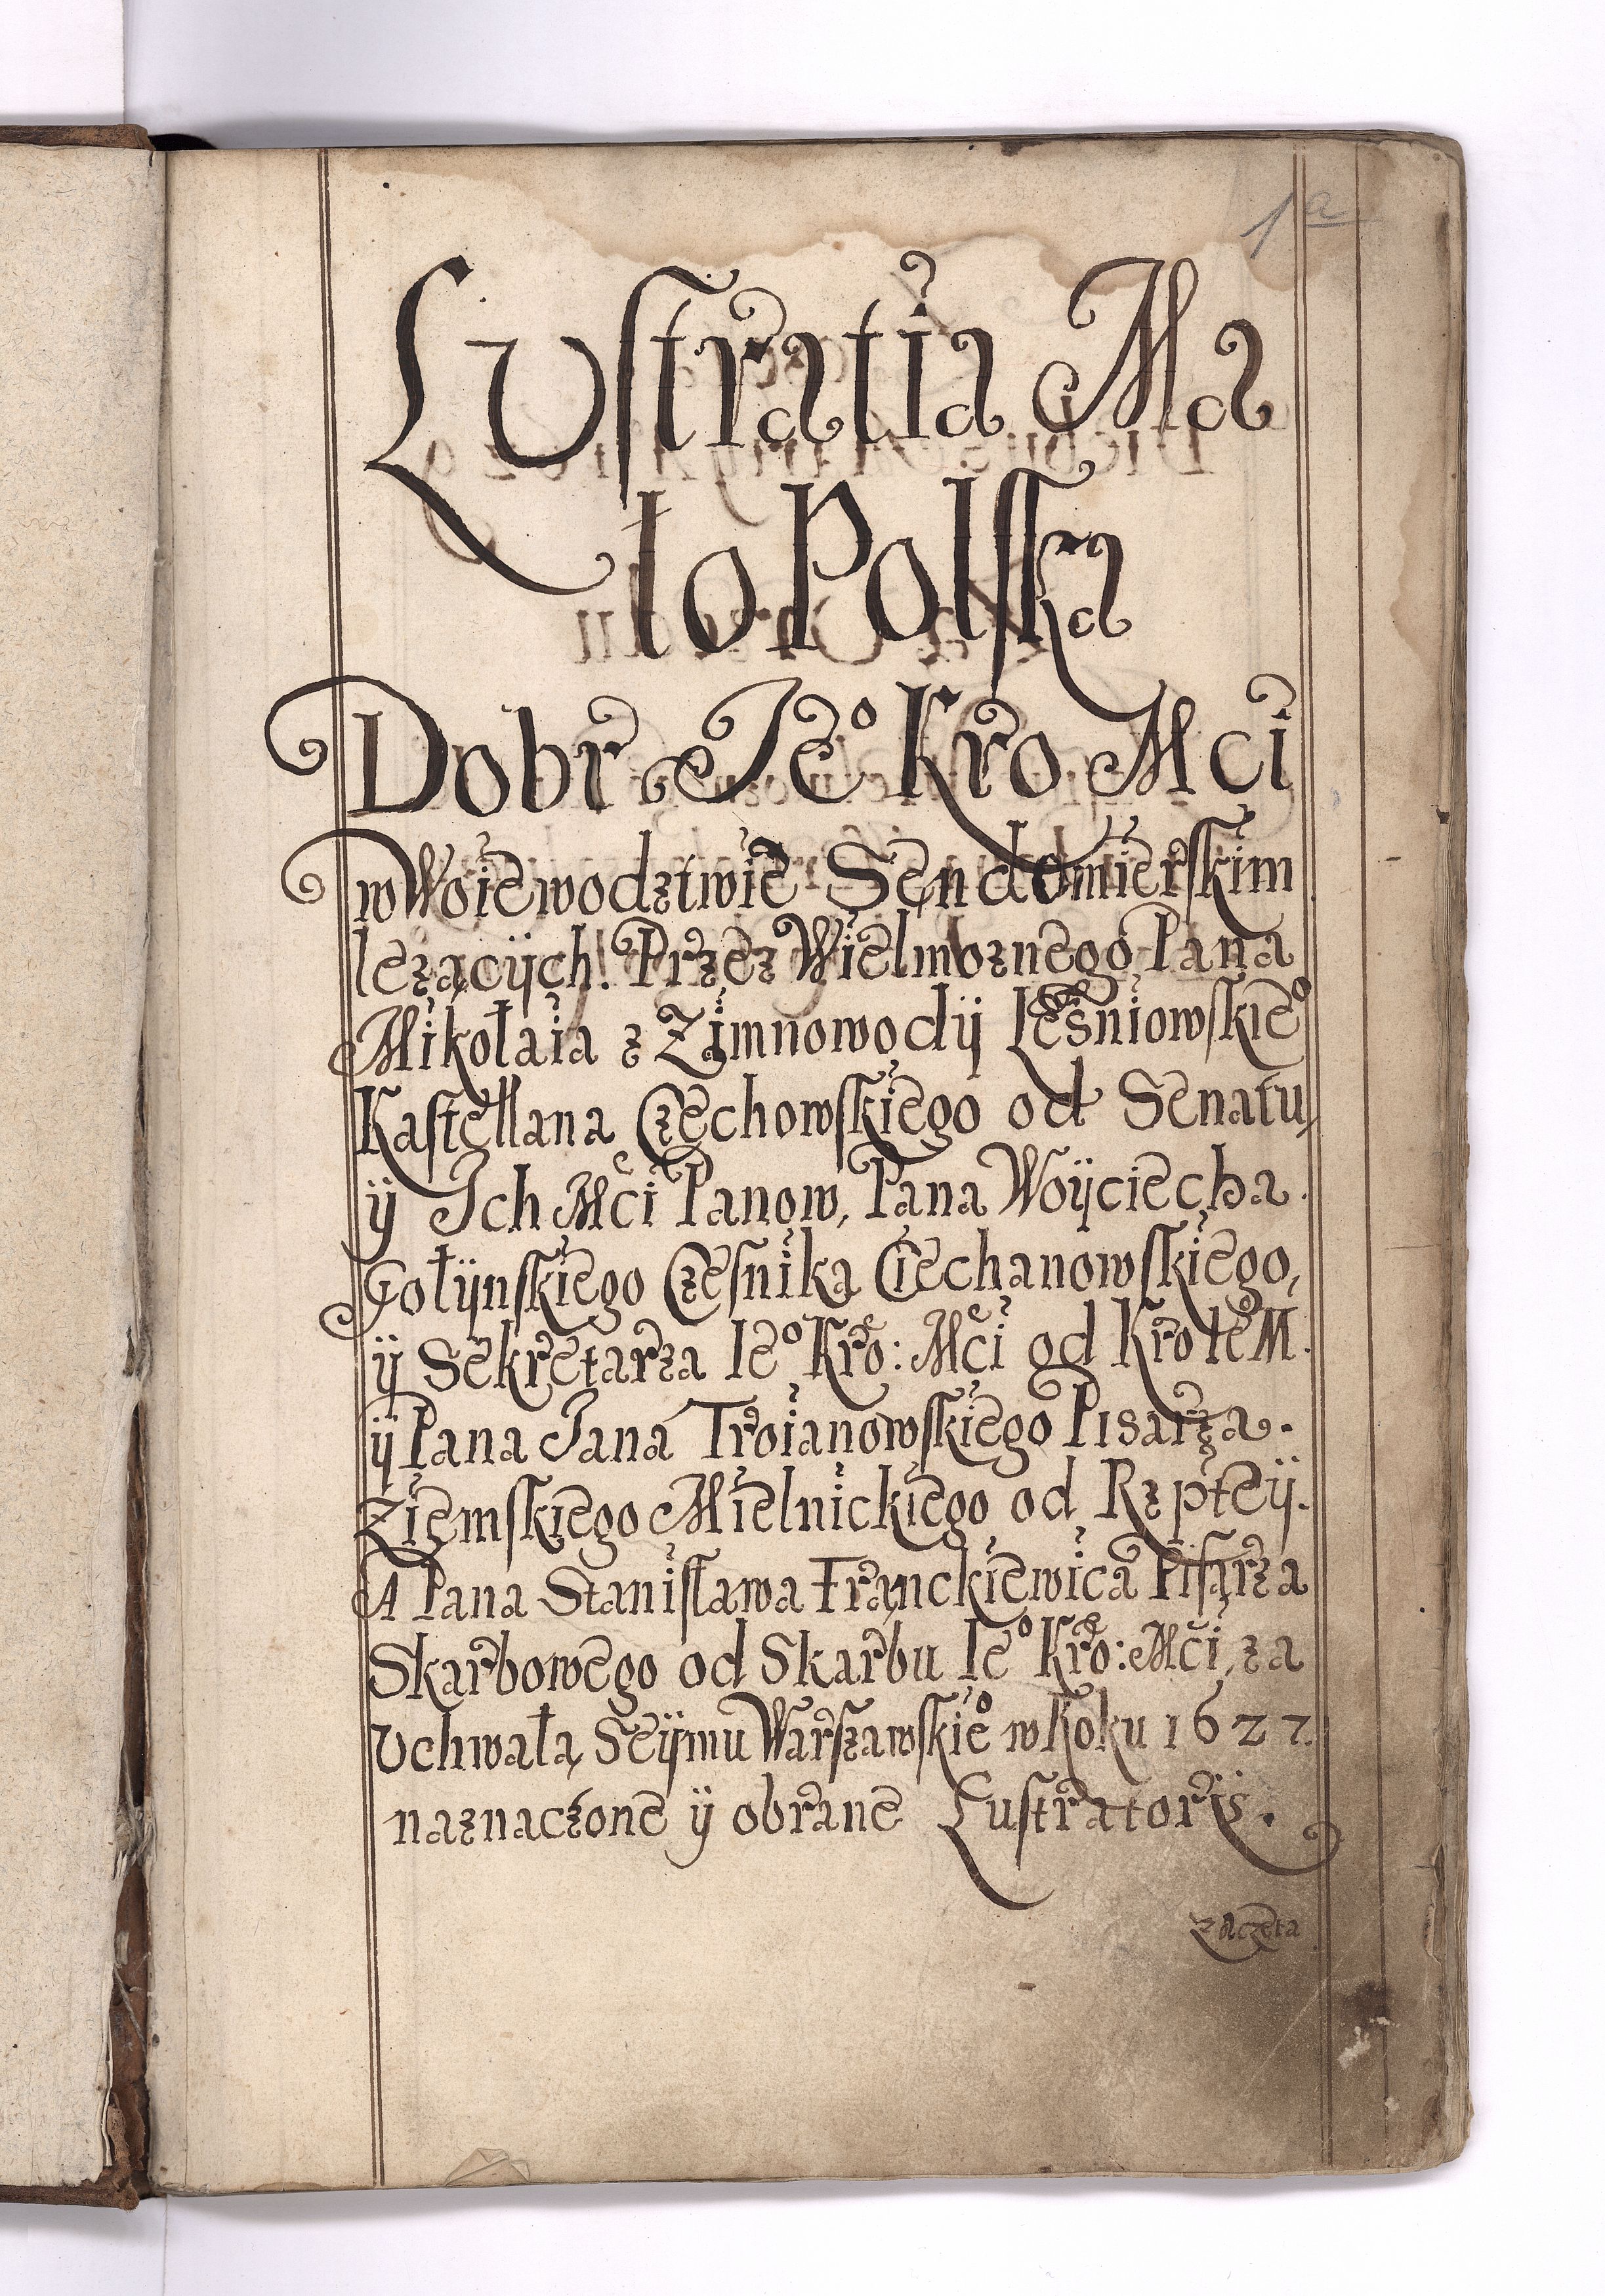 1a
Lustratia Ma
ło Polska
Dobr Ie° Kro Mci
w Woiewodztwie Sendomierskim
lezących. Przez Wielmoznego Pana
Mikołaia z Zimnowody Leśniowskie°
Kasztellana Czechowskiego od Senatu,
ÿ Ich Mci Panow, Pana Woÿciecha
Gołÿnskiego Czesnika Ciechanowskiego,
ÿ Sekretarza Ie° Kro: Mci od Kro Ie M.
ÿ Pana Jana Troianowskiego Pisarza.
Ziemskiego Mielnickiego od Rzpteÿ.
A Pana Stanisława Franckiewica Pisarza
Skarbowego od Skarbu Ie° Kro: Mci, za
Uchwałą Seÿmu Warszawskie° w Roku 1627.
naznaczone ÿ obrane Lustratorÿs.
zaczęta